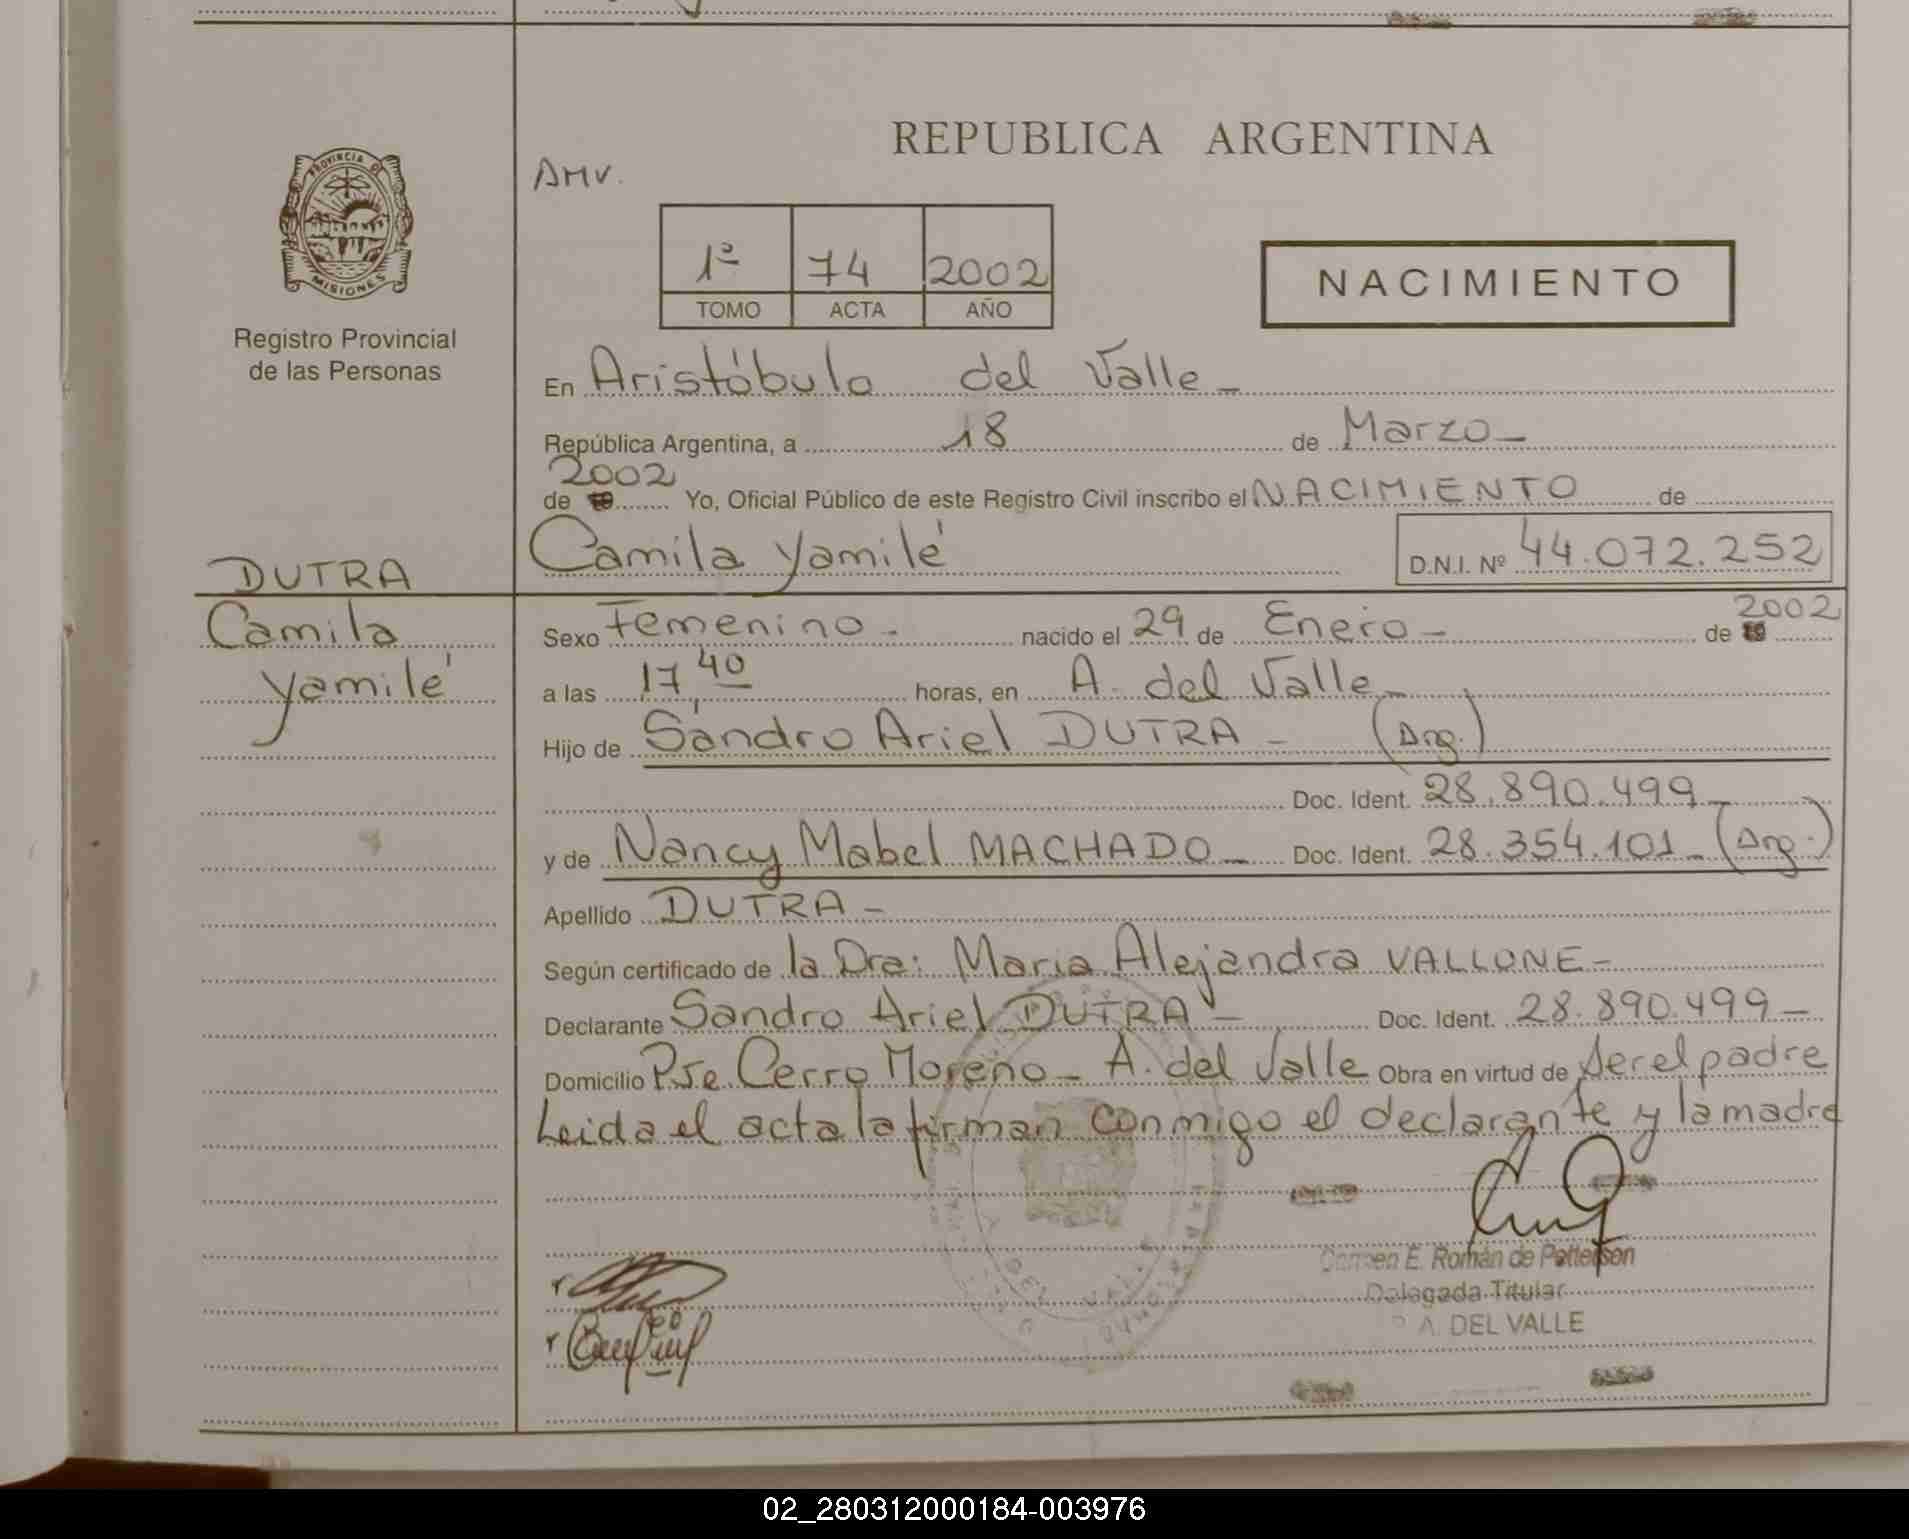 REPUBLICA ARGENTINA
AMV.
PROVINCIA DE
MISIONES
Registro Provincial
de las Personas
1º 74 2002
TOMO ACTA AÑO
NACIMIENTO
En Aristóbulo del Valle_
República Argentina, a 18 de Marzo_
2002
de 19 Yo, Oficial Público de este Registro Civil inscribo el NACIMIENTO de
Camila Yamilé D.N.I. Nº 44.072.252
DUTRA
Camila
Yamilé
Sexo Femenino - nacido el 29 de Enero - de 19 2002
a las 17,40 horas, en A. del Valle_
Hijo de Sandro Ariel DUTRA - (Arg.)
Doc. Ident. 28.890.499_
y de Nancy Mabel MACHADO_ Doc. Ident. 28.354.101_ (Arg.)
Apellido DUTRA -
Según certificado de la Dra: Maria Alejandra VALLONE-
Declarante Sandro Ariel DUTRA - Doc. Ident. 28.890.499-
Domicilio Pje. Cerro Moreno_ A. del Valle Obra en virtud de ser el padre
Leida el acta la firman conmigo el declarante y la madre
Carmen E. Román de Petterson
Delegada Titular
A. DEL VALLE
02_280312000184-003976